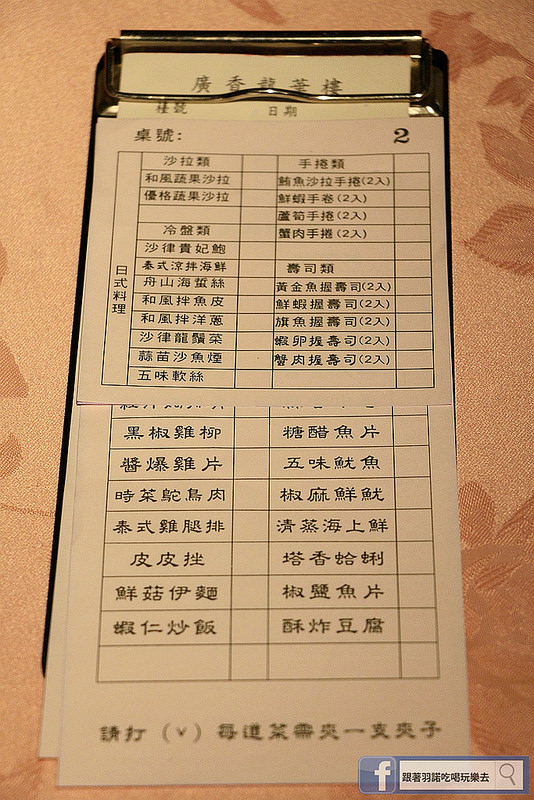 廣香龍華樓
樓號 日期
桌號: 2
日式料理
沙拉類 手捲類
和風蔬果沙拉 鮪魚沙拉手捲(2入)
優格蔬果沙拉 鮮蝦手卷(2入)
蘆筍手捲(2入)
冷盤類 蟹肉手捲(2入)
沙律貴妃鮑
泰式涼拌海鮮 壽司類
舟山海蜇絲 黃金魚握壽司(2入)
和風拌魚皮 鮮蝦握壽司(2入)
和風拌洋蔥 旗魚握壽司(2入)
沙律龍鬚菜 蝦卵握壽司(2入)
蒜苗沙魚煙 蟹肉握壽司(2入)
五味軟絲
黑椒雞柳 糖醋魚片
醬爆雞片 五味魷魚
時菜鴕鳥肉 椒麻鮮魷
泰式雞腿排 清蒸海上鮮
皮皮挫 塔香蛤蜊
鮮菇伊麵 椒鹽魚片
蝦仁炒飯 酥炸豆腐
請打（v）每道菜需夾一支夾子
f 跟著羽諾吃喝玩樂去